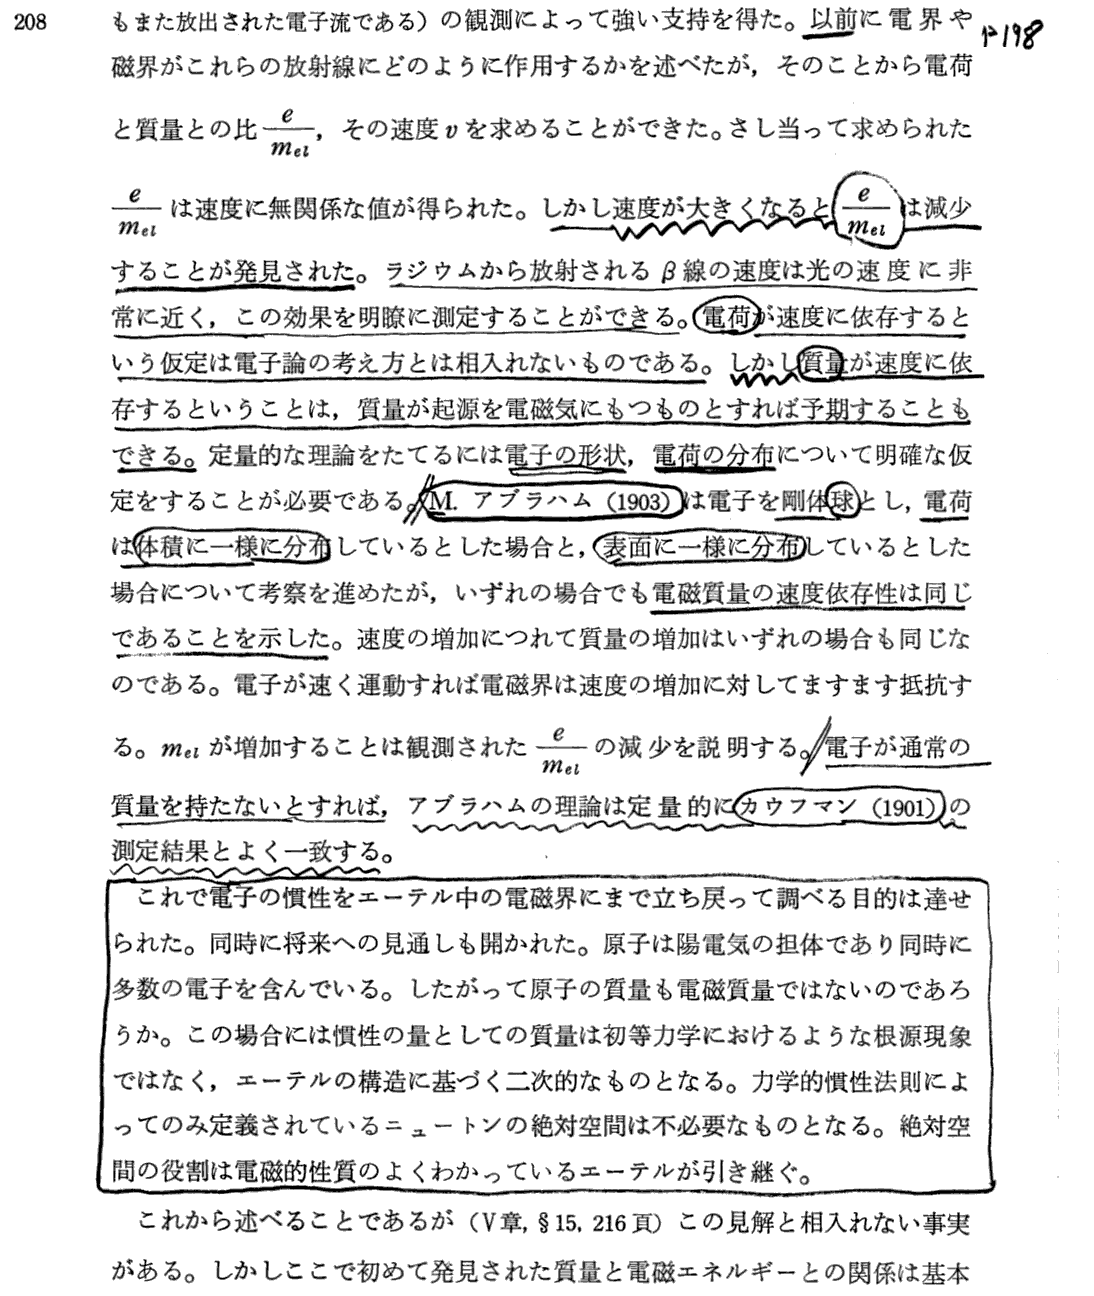 208
もまた放出された電子流である）の観測によって強い支持を得た。以前に電界や
p198
磁界がこれらの放射線にどのように作用するかを述べたが，そのことから電荷
と質量との比 e/m_el，その速度 v を求めることができた。さし当って求められた
e/m_el は速度に無関係な値が得られた。しかし速度が大きくなると e/m_el は減少
することが発見された。ラジウムから放射される β 線の速度は光の速度に非
常に近く，この効果を明瞭に測定することができる。電荷が速度に依存すると
いう仮定は電子論の考え方とは相入れないものである。しかし質量が速度に依
存するということは，質量が起源を電磁気にもつものとすれば予期することも
できる。定量的な理論をたてるには電子の形状，電荷の分布について明確な仮
定をすることが必要である。M. アブラハム（1903）は電子を剛体球とし，電荷
は体積に一様に分布しているとした場合と，表面に一様に分布しているとした
場合について考察を進めたが，いずれの場合でも電磁質量の速度依存性は同じ
であることを示した。速度の増加につれて質量の増加はいずれの場合も同じな
のである。電子が速く運動すれば電磁界は速度の増加に対してますます抵抗す
る。m_el が増加することは観測された e/m_el の減少を説明する。電子が通常の
質量を持たないとすれば，アブラハムの理論は定量的にカウフマン（1901）の
測定結果とよく一致する。
これで電子の慣性をエーテル中の電磁界にまで立ち戻って調べる目的は達せ
られた。同時に将来への見通しも開かれた。原子は陽電気の担体であり同時に
多数の電子を含んでいる。したがって原子の質量も電磁質量ではないのであろ
うか。この場合には慣性の量としての質量は初等力学におけるような根源現象
ではなく，エーテルの構造に基づく二次的なものとなる。力学的慣性法則によ
ってのみ定義されているニュートンの絶対空間は不必要なものとなる。絶対空
間の役割は電磁的性質のよくわかっているエーテルが引き継ぐ。
これから述べることであるが（V章，§15，216頁）この見解と相入れない事実
がある。しかしここで初めて発見された質量と電磁エネルギーとの関係は基本